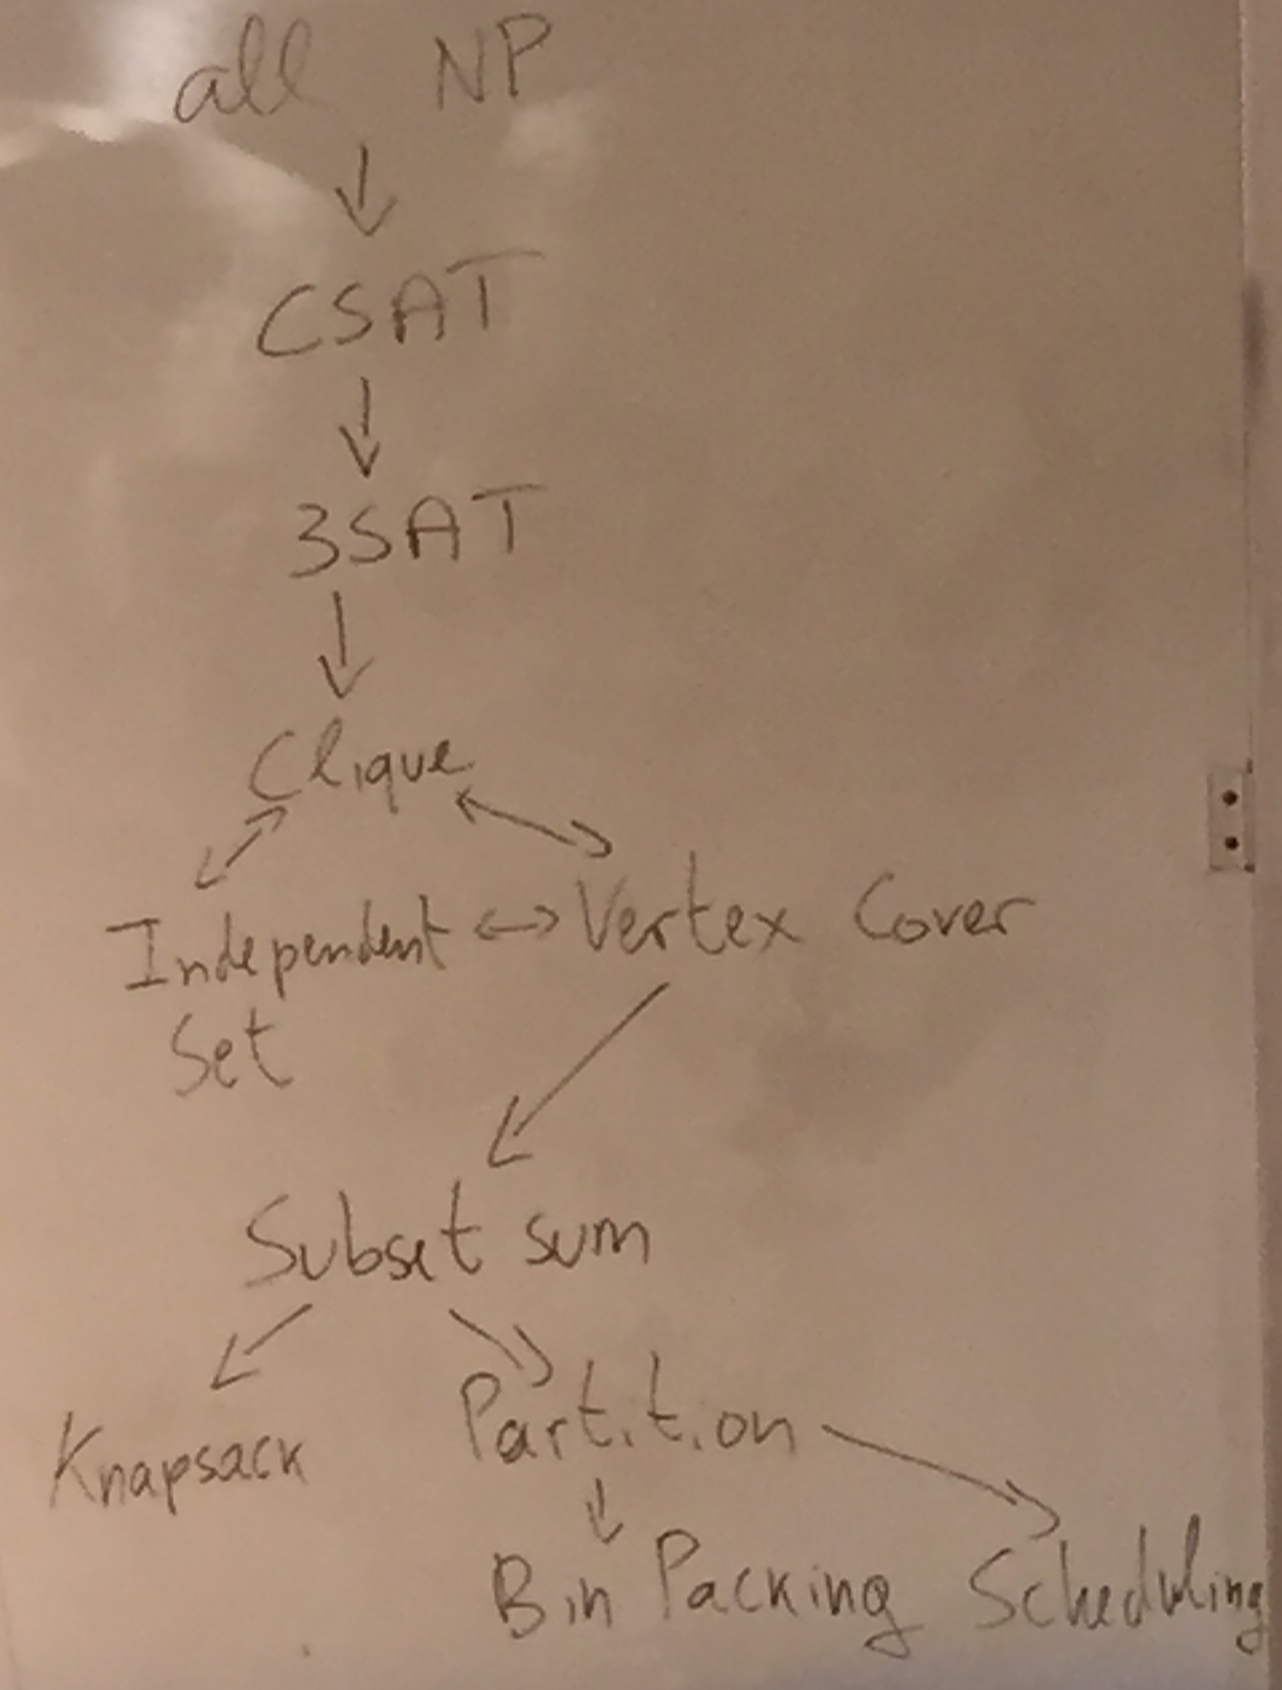 all NP
CSAT
3SAT
Clique
Independent Vertex Cover
Set
Subset sum
Knapsack Partition
Bin Packing Scheduling